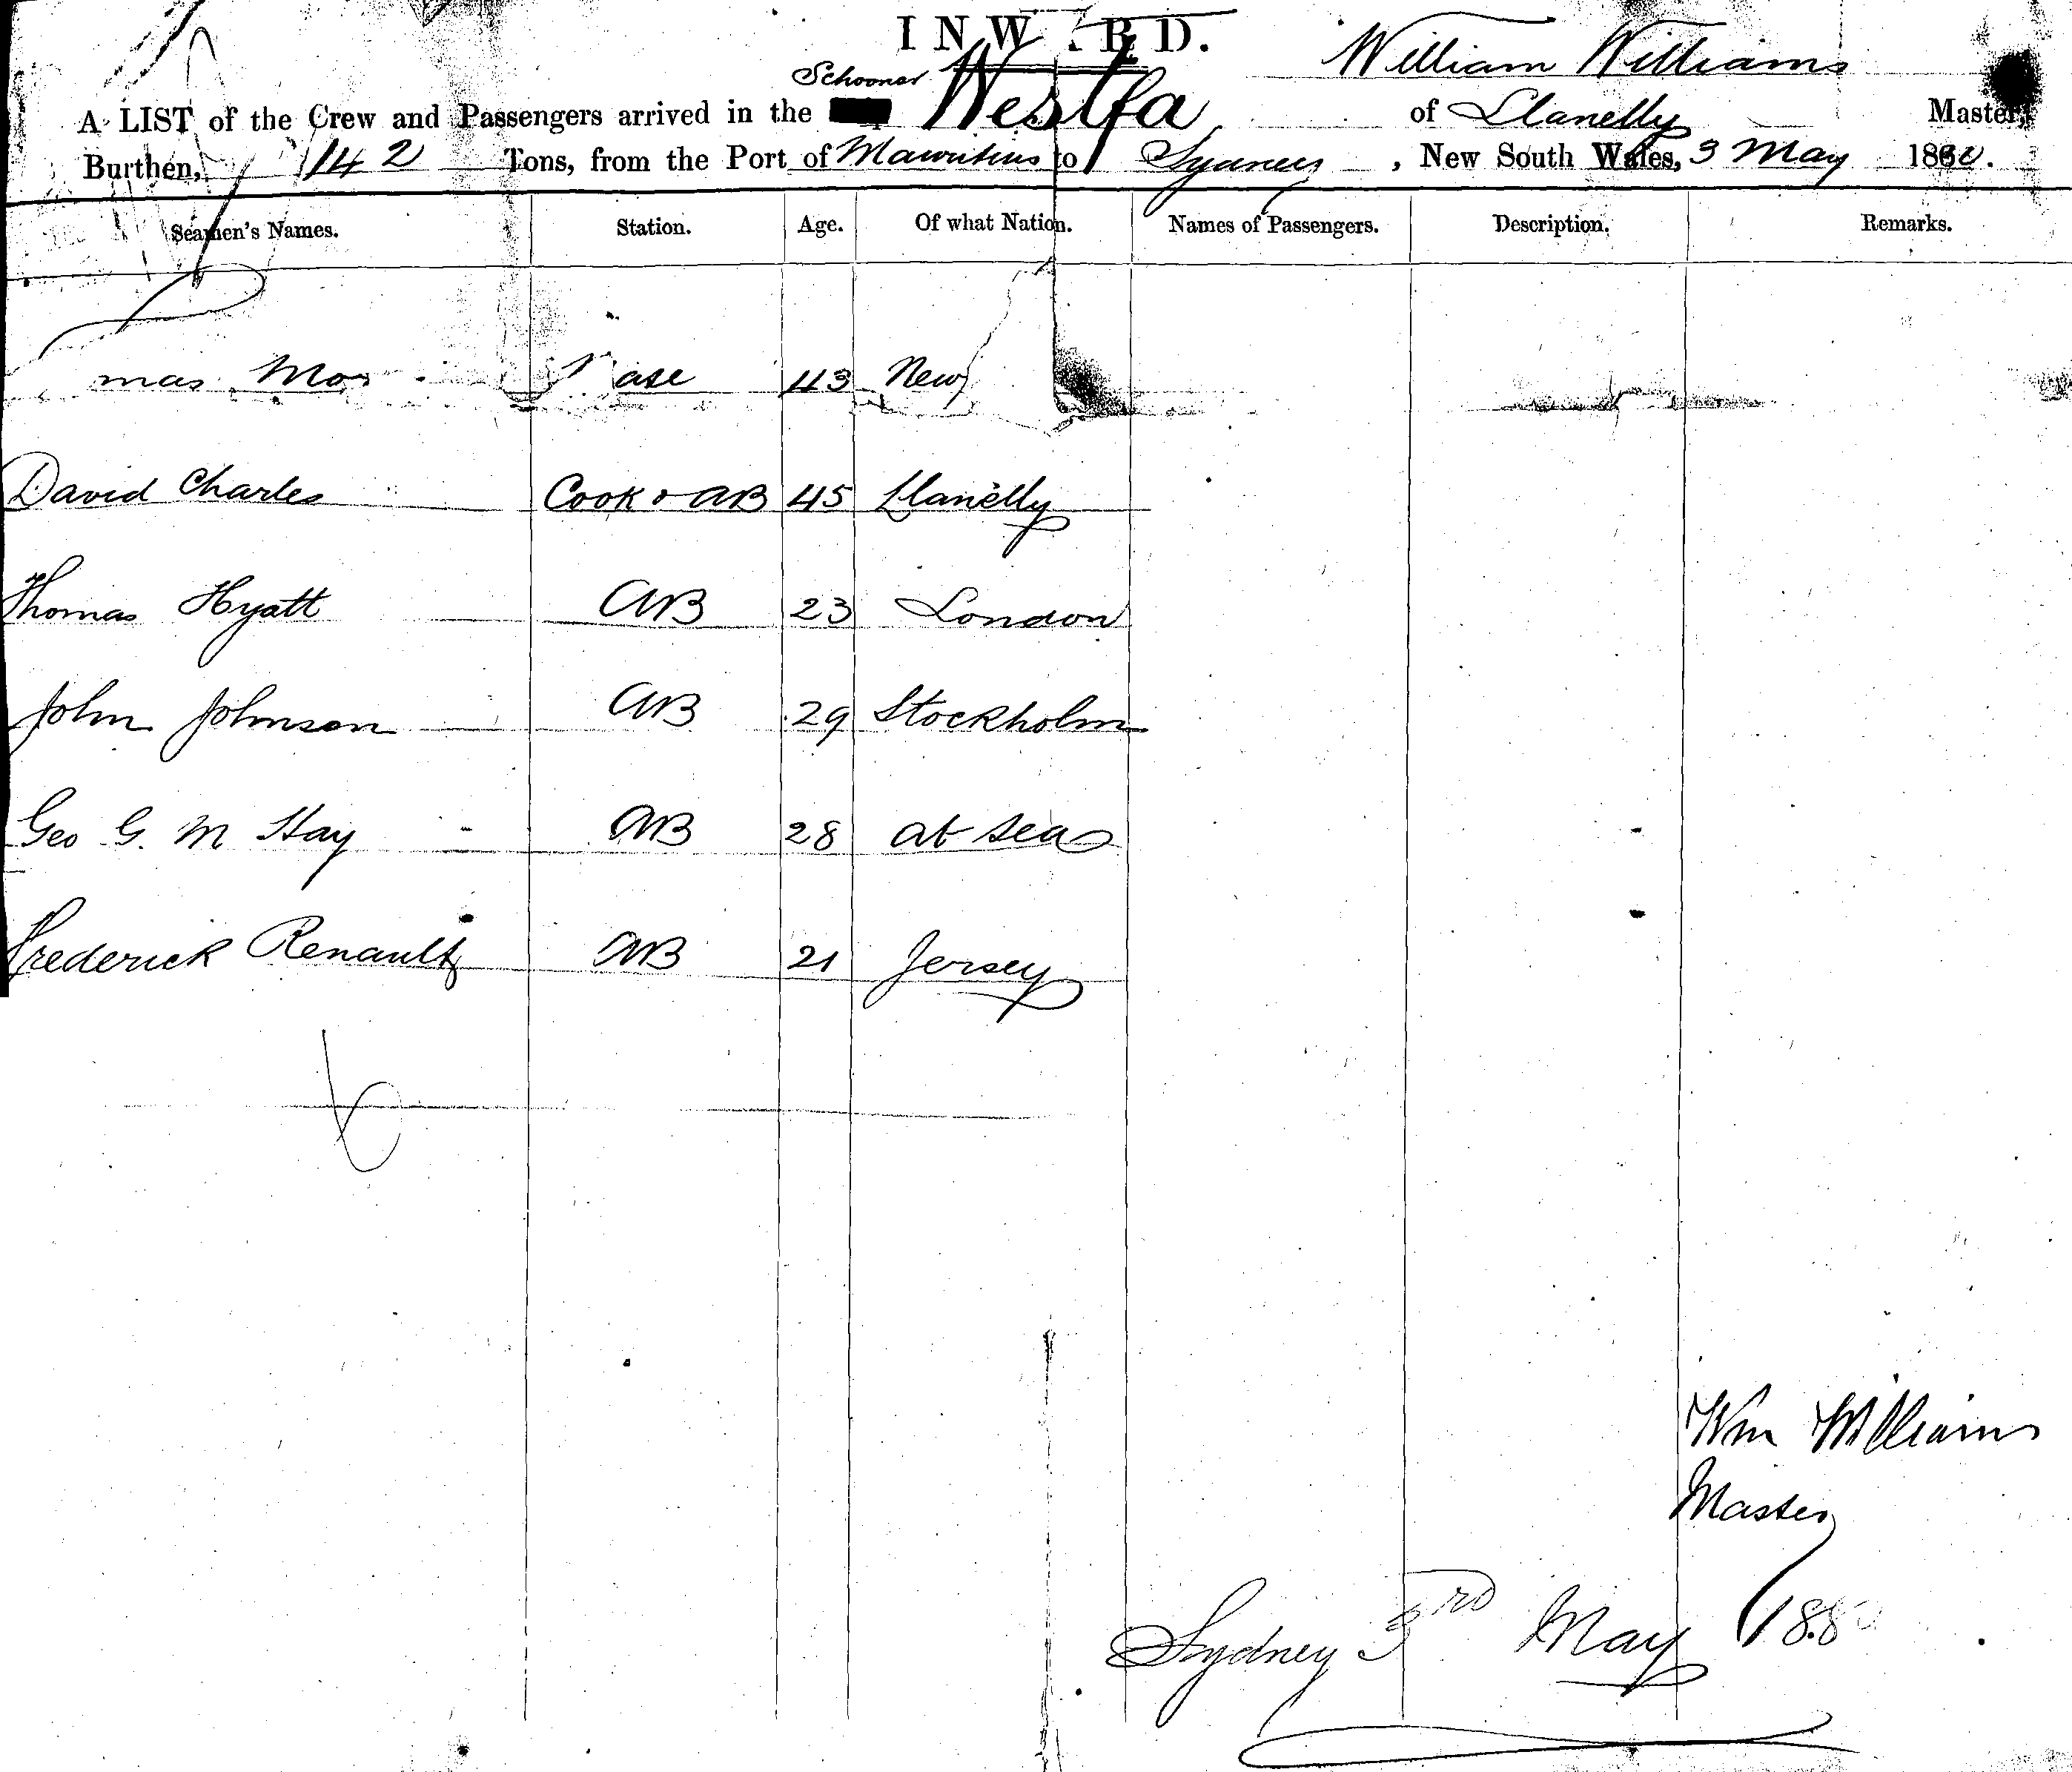 INW RD.
Schooner William Williams
A LIST of the Crew and Passengers arrived in the Westfa of Llanelly Master,
Burthen, 142 Tons, from the Port of Mauritius to Sydney, New South Wales, 3 May 1880.
Seamen's Names. Station. Age. Of what Nation. Names of Passengers. Description. Remarks.
mas 43 New
David Charles Cook & AB 45 Llanelly
Thomas Hyatt AB 23 London
John Johnson AB 29 Stockholm
Geo G. M Hay AB 28 at sea
Frederick Renault AB 21 Jersey
Wm Williams
Master
Sydney 3rd May 1880